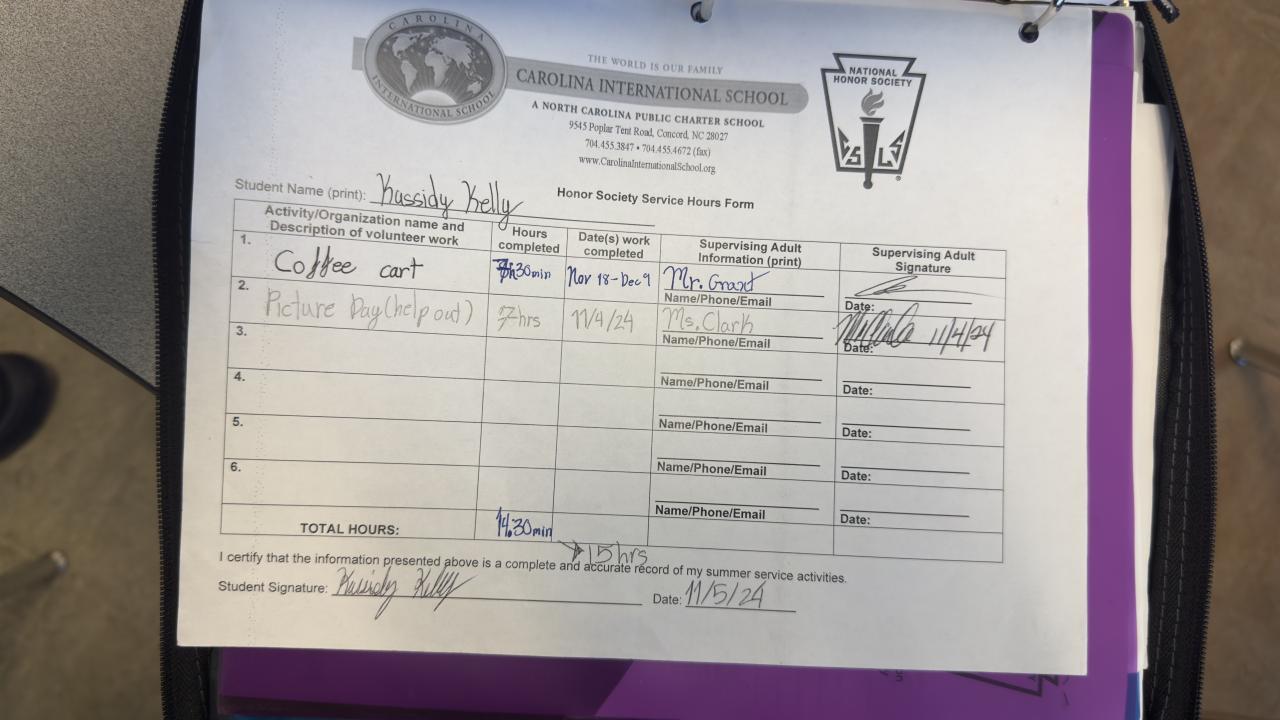 CAROLINA
INTERNATIONAL SCHOOL
THE WORLD IS OUR FAMILY
CAROLINA INTERNATIONAL SCHOOL
A NORTH CAROLINA PUBLIC CHARTER SCHOOL
9545 Poplar Tent Road, Concord, NC 28027
704.455.3847 • 704.455.4672 (fax)
www.CarolinaInternationalSchool.org
NATIONAL
HONOR SOCIETY
S L S
®
Student Name (print): Kassidy Kelly
Honor Society Service Hours Form
Activity/Organization name and
Description of volunteer work
Hours
completed
Date(s) work
completed
Supervising Adult
Information (print)
Supervising Adult
Signature
1. Coffee cart 30min Nov 18-Dec 9 Mr. Grant
Name/Phone/Email Date:
2. Picture Day (help out) 7hrs 11/4/24 Ms. Clark 11/4/24
Name/Phone/Email Date:
3.
Name/Phone/Email Date:
4.
Name/Phone/Email Date:
5.
Name/Phone/Email Date:
6.
Name/Phone/Email Date:
TOTAL HOURS: 14:30min
15hrs
I certify that the information presented above is a complete and accurate record of my summer service activities.
Student Signature: Kassidy Kelly Date: 11/5/24